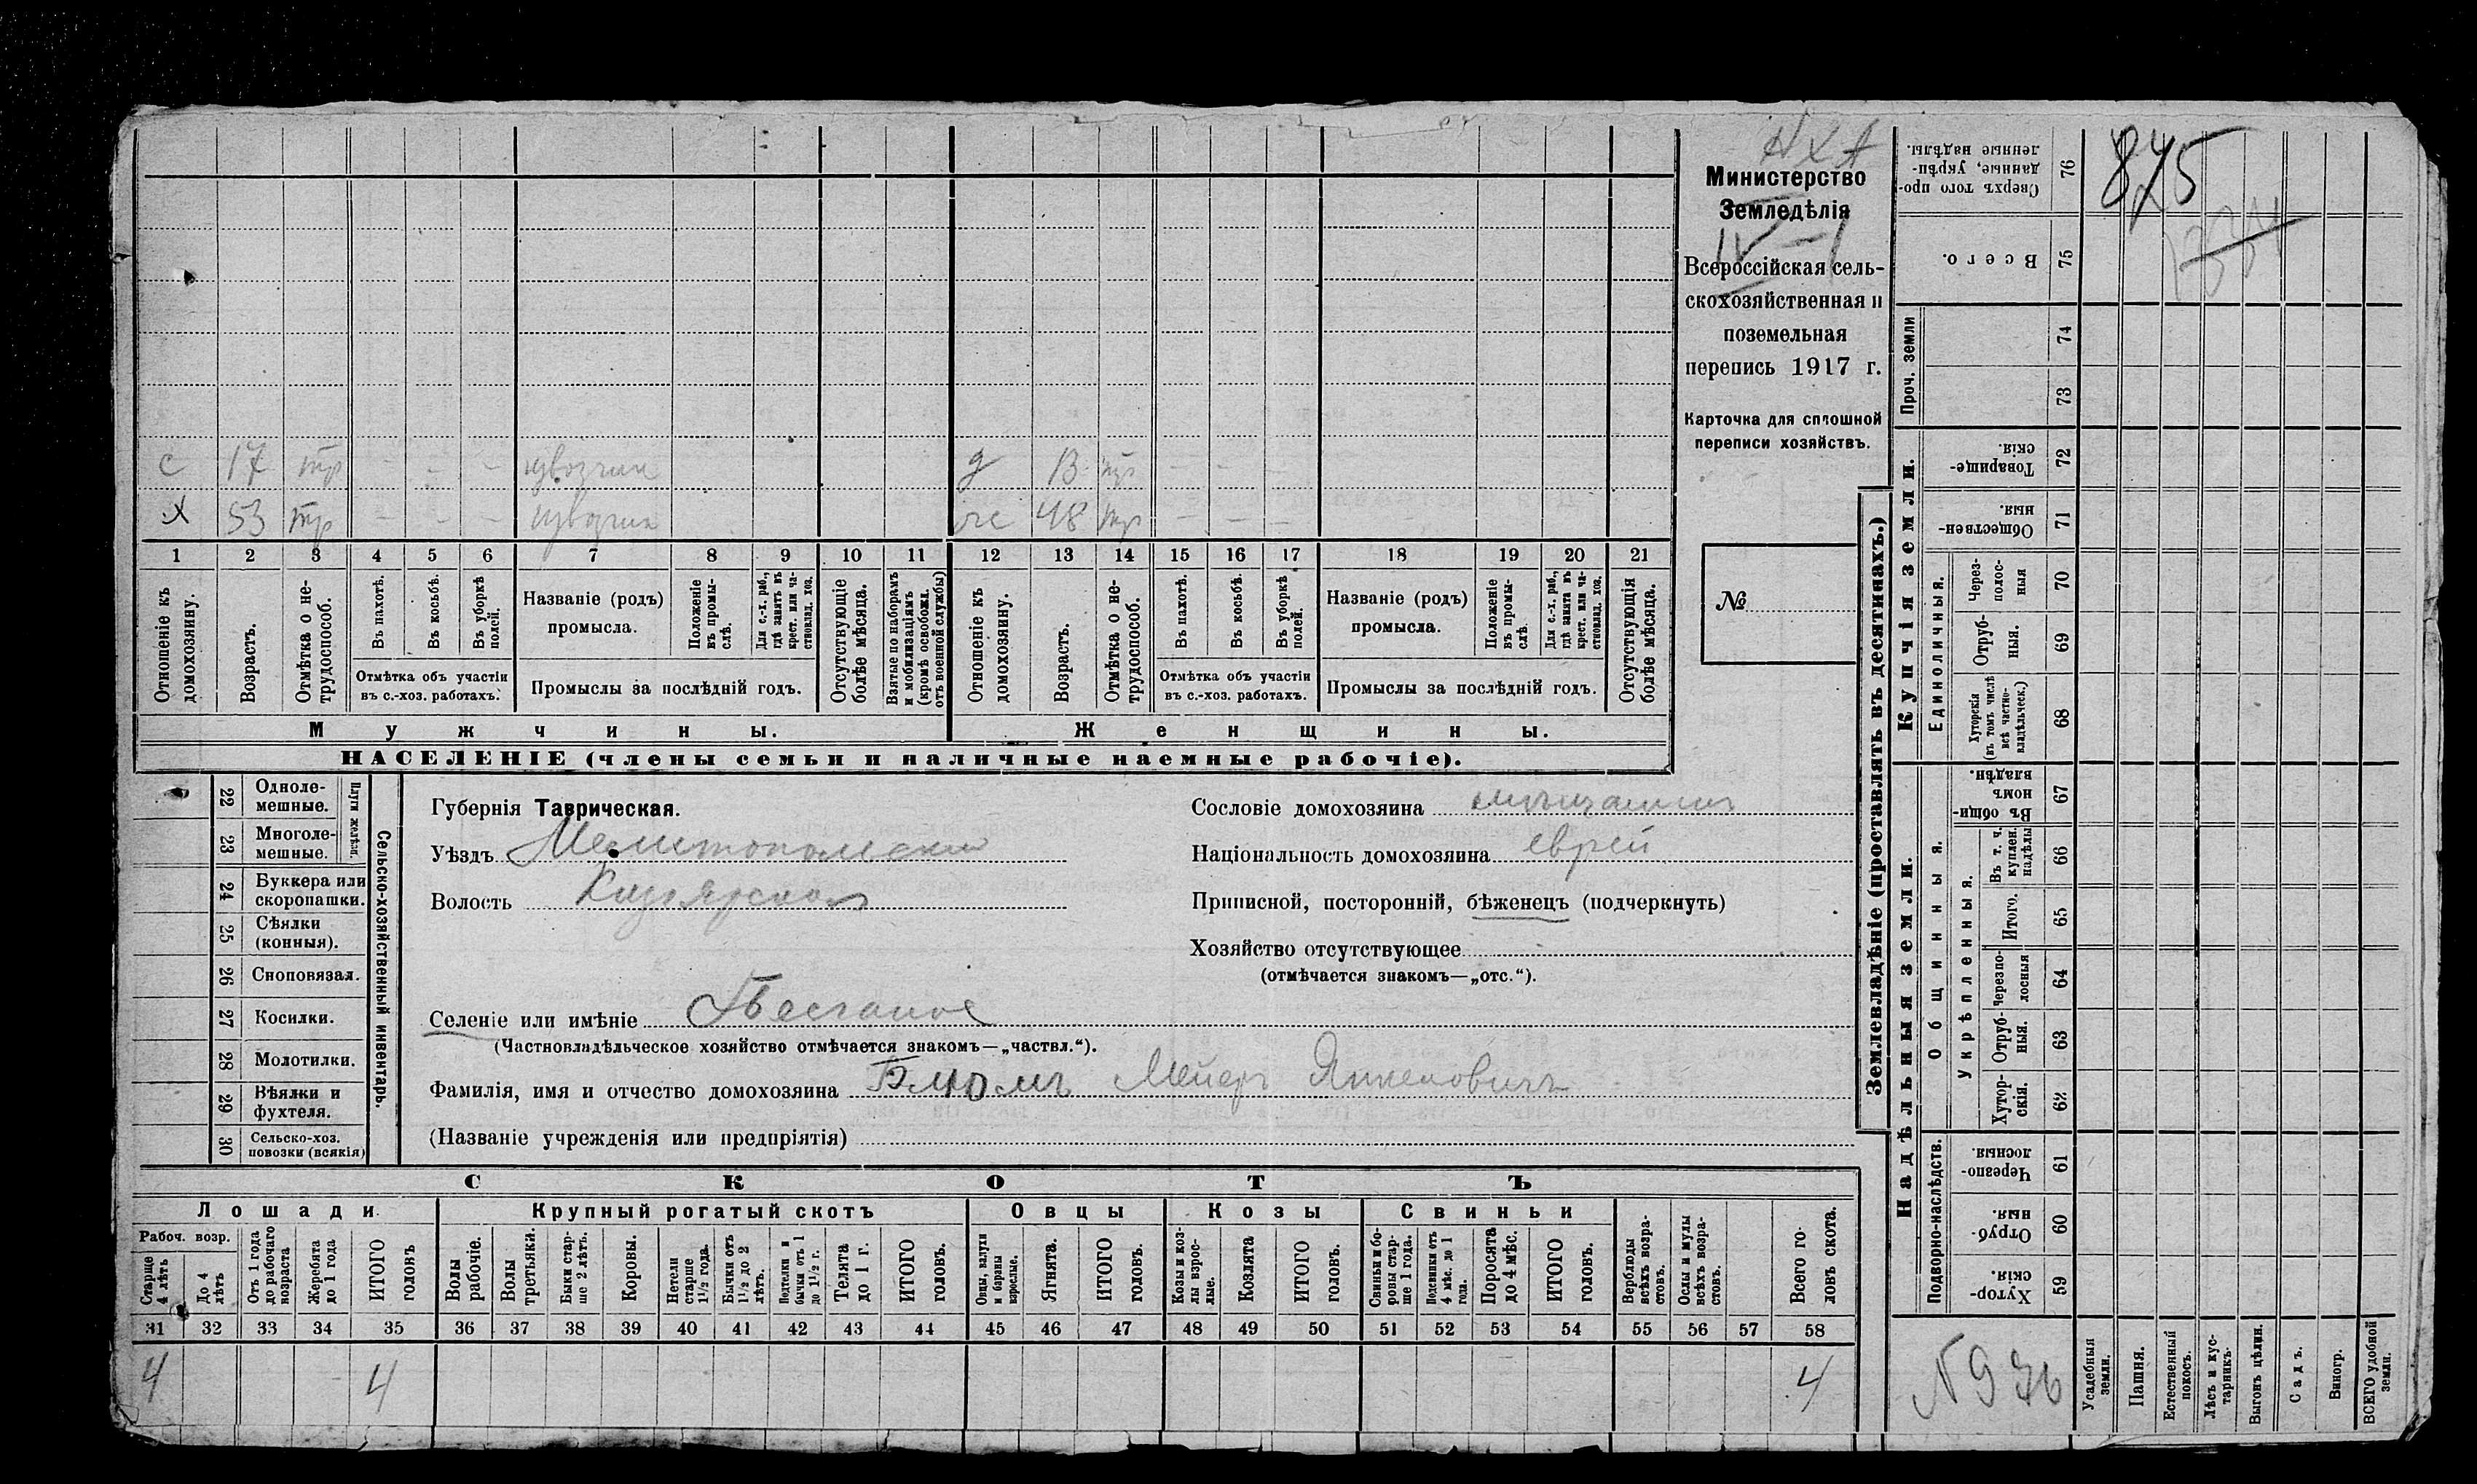 НХА
Министерство
Земледѣлія
IV–1
Всероссійская сель-
скохозяйственная и
поземельная
перепись 1917 г.
Карточка для сплошной
переписи хозяйствъ.
№
с 17 тр - - - извозчик д 13 тр - - -
х 53 тр - - - извозчик ж 48 тр - - -
1 2 3 4 5 6 7 8 9 10 11 12 13 14 15 16 17 18 19 20 21
Отношеніе къ домохозяину.
Возрастъ.
Отмѣтка о не-трудоспособ.
Въ пахотѣ.
Въ косьбѣ.
Въ уборкѣ полей.
Отмѣтка объ участіи
въ с.-хоз. работахъ.
Названіе (родъ)
промысла.
Положеніе въ промы-слѣ.
Для с.-х. раб., гдѣ занятъ въ крест. или ча-стновлад. хоз.
Промыслы за послѣдній годъ.
Отсутствующіе болѣе мѣсяца.
Взятые по наборамъ и мобилизаціямъ (кромѣ освобожд. отъ военной службы)
Отношеніе къ домохозяину.
Возрастъ.
Отмѣтка о не-трудоспособ.
Въ пахотѣ.
Въ косьбѣ.
Въ уборкѣ полей.
Отмѣтка объ участіи
въ с.-хоз. работахъ.
Названіе (родъ)
промысла.
Положеніе въ промы-слѣ.
Для с.-х. раб., гдѣ занята въ крест. или ча-стновлад. хоз.
Промыслы за послѣдній годъ.
Отсутствующія болѣе мѣсяца.
Мужчины.
Женщины.
НАСЕЛЕНІЕ (члены семьи и наличные наемные рабочіе).
22 Одноле-мешные.
23 Многоле-мешные.
Плуги желѣзн.
24 Буккера или скоропашки.
25 Сѣялки (конныя).
26 Сноповязал.
27 Косилки.
28 Молотилки.
29 Вѣялки и фухтеля.
30 Сельско-хоз. повозки (всякія)
Сельско-хозяйственный инвентарь.
Губернія Таврическая.
Уѣздъ Мелитопольский
Волость
Сословіе домохозяина мѣщанинъ
Національность домохозяина еврей
Приписной, посторонній, бѣженецъ (подчеркнуть)
Хозяйство отсутствующее
(отмѣчается знакомъ—„отс.“).
Селеніе или имѣніе
(Частновладѣльческое хозяйство отмѣчается знакомъ—„частвл.“).
Фамилія, имя и отчество домохозяина Блюмъ Мейеръ Янкелевичъ
(Названіе учрежденія или предпріятія)
СКОТЪ
Лошади
Крупный рогатый скотъ
Овцы
Козы
Свиньи
Рабоч. возр.
Старше 4 лѣтъ
До 4 лѣтъ
Отъ 1 года до рабочаго возраста
Жеребята до 1 года
ИТОГО головъ
Волы рабочіе.
Волы третьяки.
Быки стар-ше 2 лѣтъ.
Коровы.
Нетели старше 1½ года.
Бычки отъ 1½ до 2 лѣтъ.
Нетелки и бычки отъ 1 до 1½ г.
Телята до 1 г.
ИТОГО головъ.
Овцы, валухи и бараны взрослые.
Ягнята.
ИТОГО головъ.
Козы и коз-лы взрос-лые.
Козлята
ИТОГО головъ.
Свиньи и бо-ровы стар-ше 1 года.
Подсвинки отъ 4 мѣс. до 1 года.
Поросята до 4 мѣс.
ИТОГО головъ.
Верблюды всѣхъ возра-стовъ.
Ослы и мулы всѣхъ возра-стовъ.
Всего го-ловъ скота.
31 32 33 34 35 36 37 38 39 40 41 42 43 44 45 46 47 48 49 50 51 52 53 54 55 56 57 58
4 4 4
Землевладѣніе (проставлять въ десятинахъ.)
Купчія земли.
Надѣльныя земли.
Сверхъ того про-данные, укрѣп-ленные надѣлы. 76
Всего. 75
Проч. земли 74 73
Товарище-скія. 72
Обществен-ныя. 71
Единоличныя.
Через-полос-ныя 70
Отруб-ныя. 69
Хуторскія (въ томъ числѣ всѣ частно-владѣльческ.) 68
Въ общи-номъ владѣн. 67
Въ т. ч. куплен. надѣлы 66
Итого. 65
Общинныя.
Укрѣпленныя.
Черезпо-лосныя 64
Отруб-ныя. 63
Хутор-скія. 62
Подворно-наслѣдств.
Черезпо-лосныя. 61
Отруб-ныя. 60
Хутор-скія. 59
Усадебныя земли.
Пашня.
Естественный покосъ.
Лѣсъ и кус-тарникъ.
Выгонъ цѣлин.
Садъ.
Виногр.
ВСЕГО удобной земли.
875